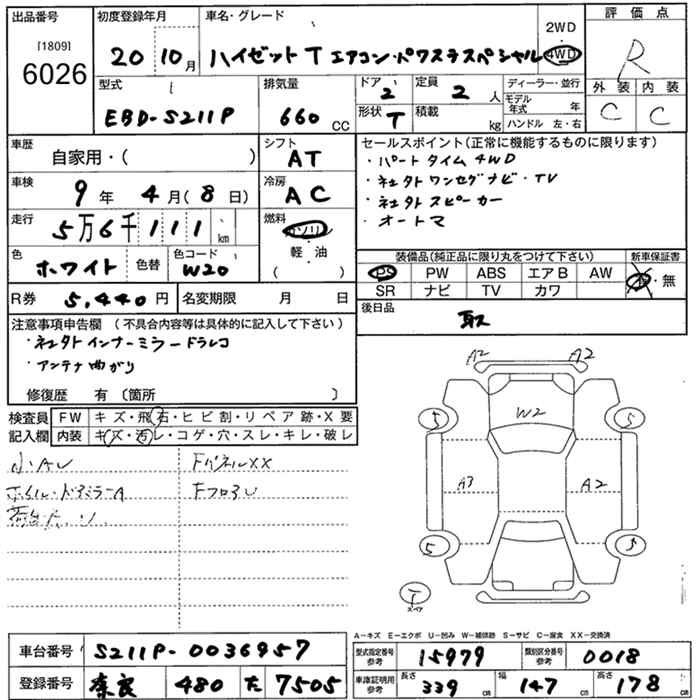 出品番号
[1809]
6026
初度登録年月
20 10月
車名・グレード
ハイゼットT エアコン・パワステスペシャル
2WD
・
4WD
評価点
R
外装 内装
C C
型式
EBD-S211P
排気量
660 CC
ドア 2
形状 T
定員 2 人
積載 kg
ディーラー・並行
モデル年式 年
ハンドル 左・右
車歴
自家用・( )
シフト
AT
車検
9年 4月(8日)
冷房
AC
走行
5万6千111 km
燃料
ガソリン
軽・油
( )
色
ホワイト 色替
色コード
W20
R券 5,440円
名変期限 月 日
セールスポイント(正常に機能するものに限ります)
・パートタイム4WD
・社外ワンセグナビ・TV
・社外スピーカー
・オートマ
装備品(純正品に限り丸をつけて下さい)
PS PW ABS エアB AW
SR ナビ TV カワ
新車保証書
有・無
後日品
取ス
注意事項申告欄 (不具合内容等は具体的に記入して下さい)
・社外インナーミラードラレコ
・アンテナ曲がり
修復歴 有 〔箇所 〕
検査員記入欄
FW キズ・飛石・ヒビ割・リペア跡・X要
内装 キズ・汚レ・コゲ・穴・スレ・キレ・破レ
小AU
ホイル・ドアミラーA
荷台
FパネルXX
FフロアU
A2 A2
W2
5 5
A3 A2
5 5
T
スペア
A-キズ E-エクボ U-凹み W-補修跡 S-サビ C-腐食 XX-交換済
車台番号 S211P-0036957
登録番号 奈良 480 た 7505
型式指定番号 参考 15979
類別区分番号 参考 0018
車庫証明用 参考 長さ 339 cm 幅 147 cm 高さ 178 cm